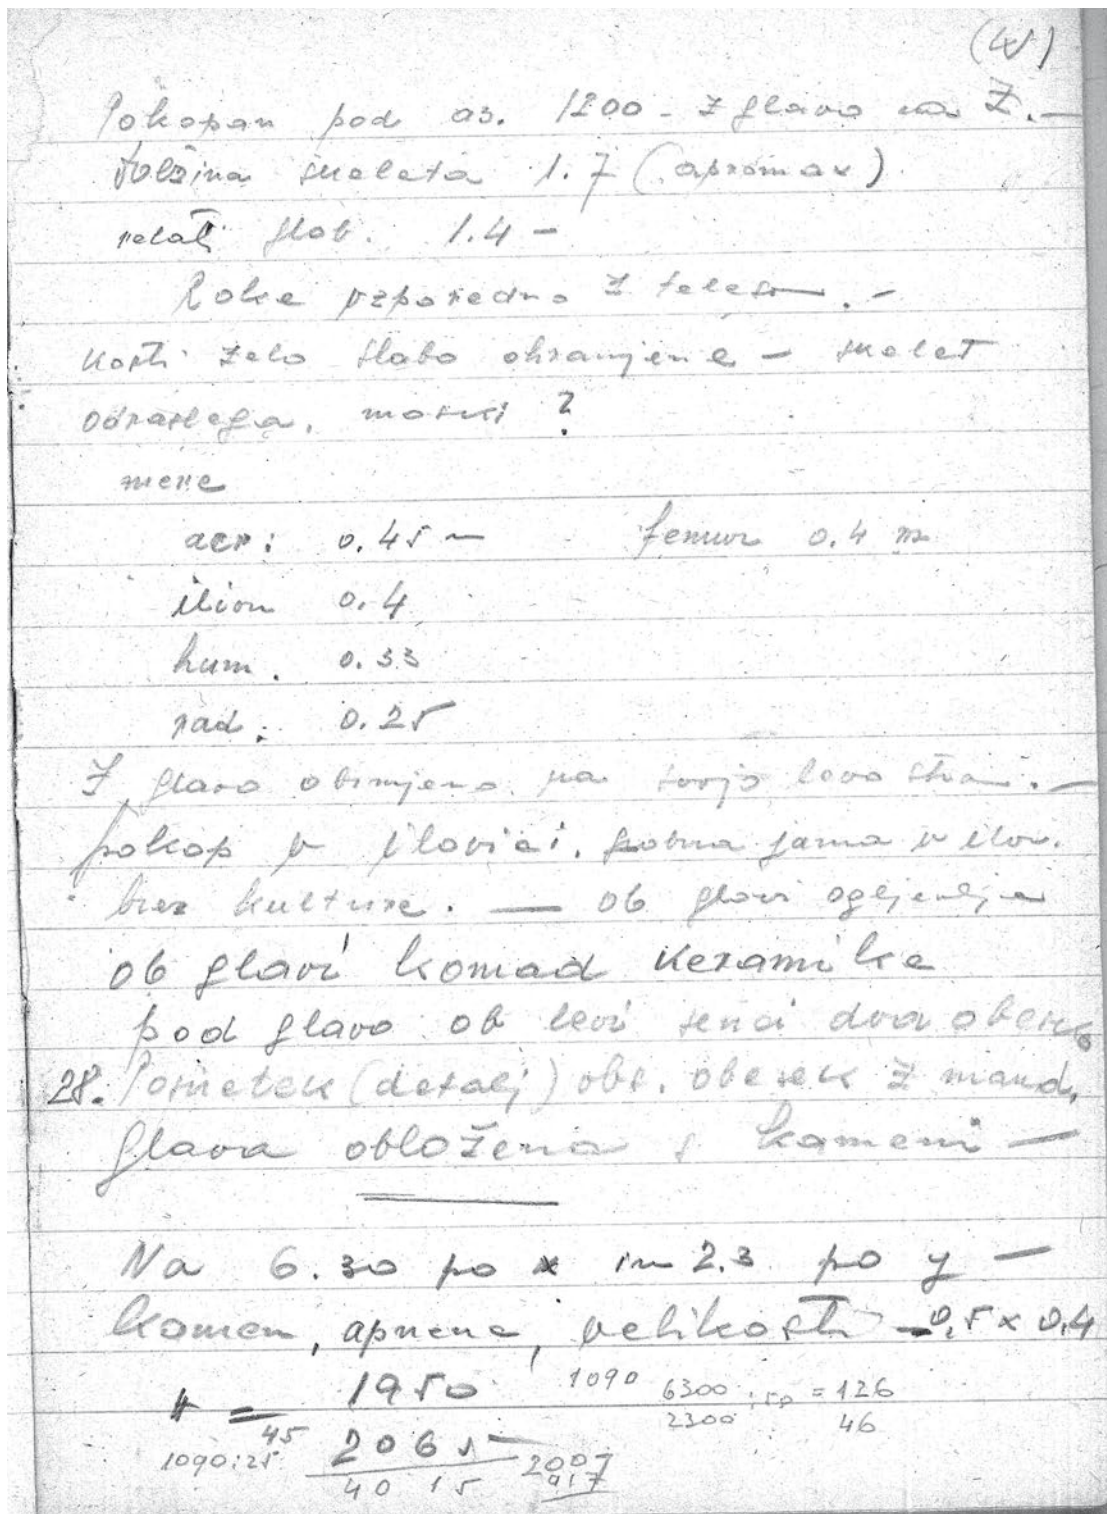 Pokopan pod as. 1200 - Z glavo na Z. -
dolžina skeleta 1.7 (apromax)
relat. glob. 1.4 -
Roke vzporedno z telesom. -
Kosti zelo slabo ohranjene - skelet
odraslega, moški ?
mere
acr: 0.45 - femur 0.4 m
ilion 0.4
hum. 0.33
rad: 0.25
Z glavo obrnjeno na svojo levo stran. -
pokop v ilovici, grobna jama v ilov.
brez kulture. - ob glavi ogljenje
ob glavi komad keramike
pod glavo ob levi senci dva obeska
28. Posnetek (detalj) obs. obesek z mand.
glava obložena s kameni -
Na 6.30 po x in 2.3 po y -
kamen, apnene, velikosti - 0,5 x 0,4
= 1950 1090 6300 : 50 = 126
2300 46
45 2065
1090:25 40 15 2007
917